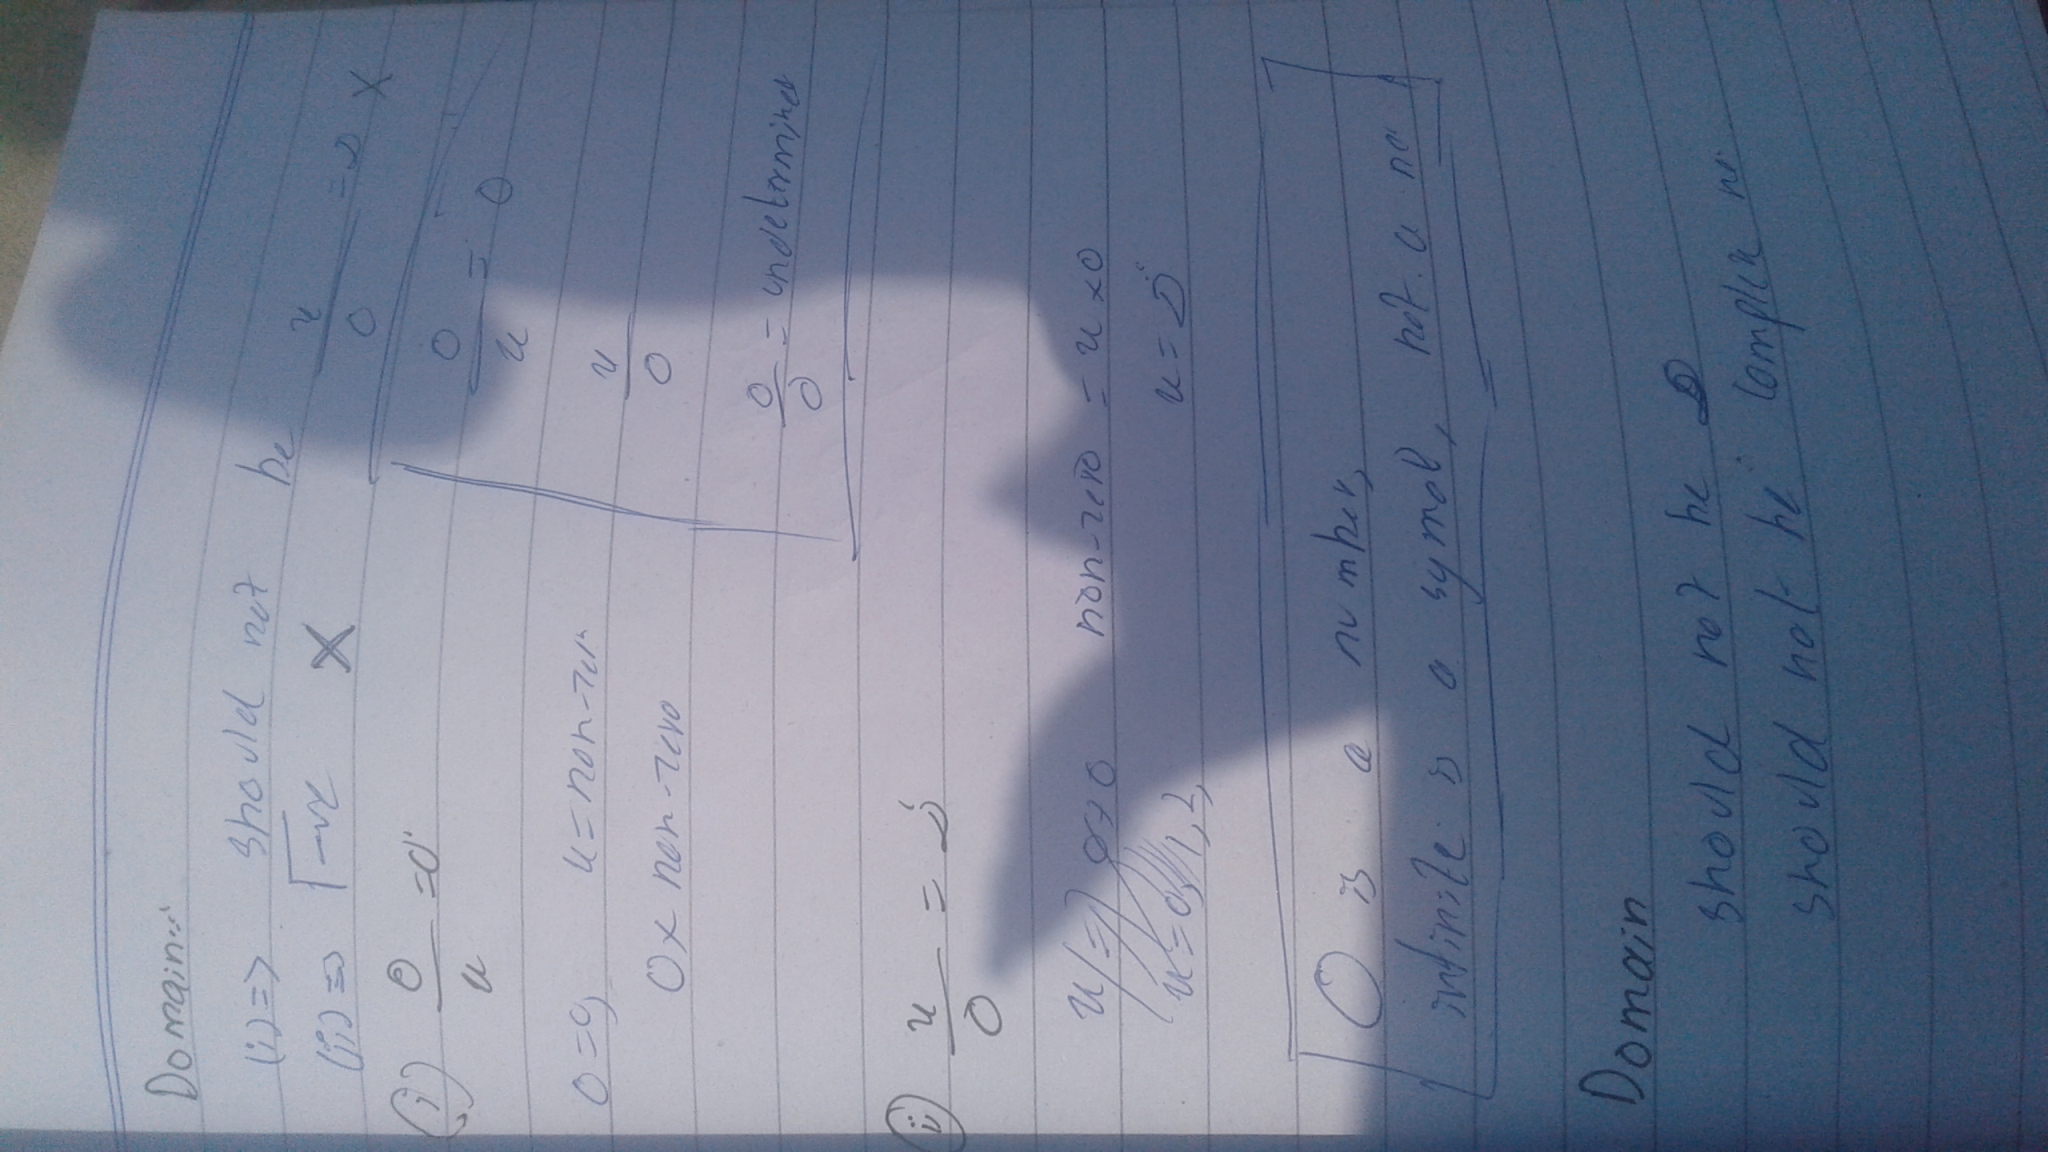 Domain:-
(i) => should not be x/0 = ∞ X
(ii) => √-ve X
(i) 0/x = 0
0 = 0, x = non-zero
0 x non-zero
0/x = 0
x/0
0/0 = undetermined
(ii) x/0 = ∞
non-zero = x × 0
x = 0, 1, 2,
x = ∞
0 is a number,
infinite is a symol, not a no
Domain
should not be ∞
should not be complex no